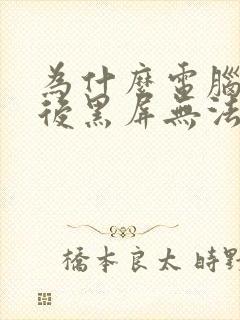 為什麼電腦
後黑屏無法
橋本良太 時